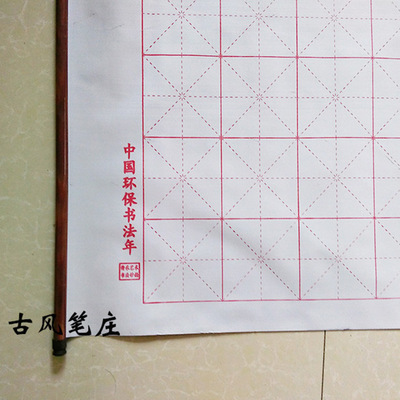 中国环保书法年
古风笔庄